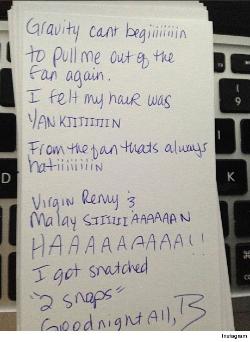 Gravity cant begiiiiiiiin
to pull me out of the
fan again.
I felt my hair was
YANKIIIIIIIN
From the fan thats always
hatiiiiiiiin
Virgin Remy &
Malay SIIIIIIAAAAAAN
HAAAAAAAAAA!!
I got snatched
"2 snaps"
Goodnight All, B
Instagram